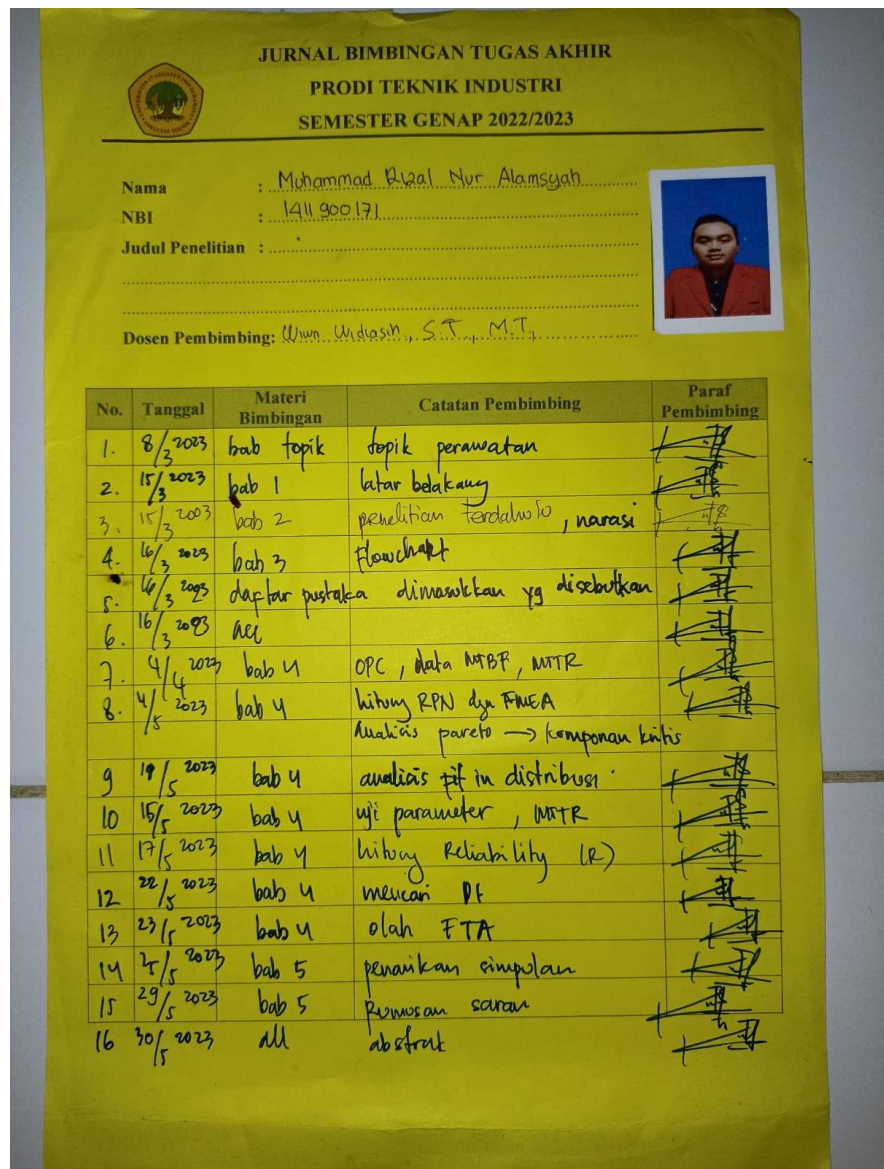 JURNAL BIMBINGAN TUGAS AKHIR
PRODI TEKNIK INDUSTRI
SEMESTER GENAP 2022/2023
Nama : Muhammad Rizal Nur Alamsyah
NBI : 1411900171
Judul Penelitian :
Dosen Pembimbing: Wiwin Widiasih, S.T., M.T.,
No. Tanggal Materi Bimbingan Catatan Pembimbing Paraf Pembimbing
1. 8/3 2023 bab topik topik perawatan
2. 15/3 2023 bab 1 latar belakang
3. 15/3 2003 bab 2 penelitian terdahulu, narasi
4. 16/3 2023 bab 3 Flowchart
5. 16/3 2023 daftar pustaka dimasukkan yg disebutkan
6. 16/3 2023 acc
7. 4/4 2023 bab 4 OPC, data MTBF, MTTR
8. 4/5 2023 bab 4 hitung RPN dgn FMEA
Analisis pareto → komponan kritis
9 /5 2023 bab 4 analisis fit in distribusi
10 15/5 2023 bab 4 uji parameter, MTTR
11 17/5 2023 bab 4 hitung Reliability (R)
12 22/5 2023 bab 4 mencari
13 23/5 2023 bab 4 olah FTA
14 /5 2023 bab 5 penarikan simpulan
15 29/5 2023 bab 5 Rumusan saran
16 30/5 2023 all abstrak